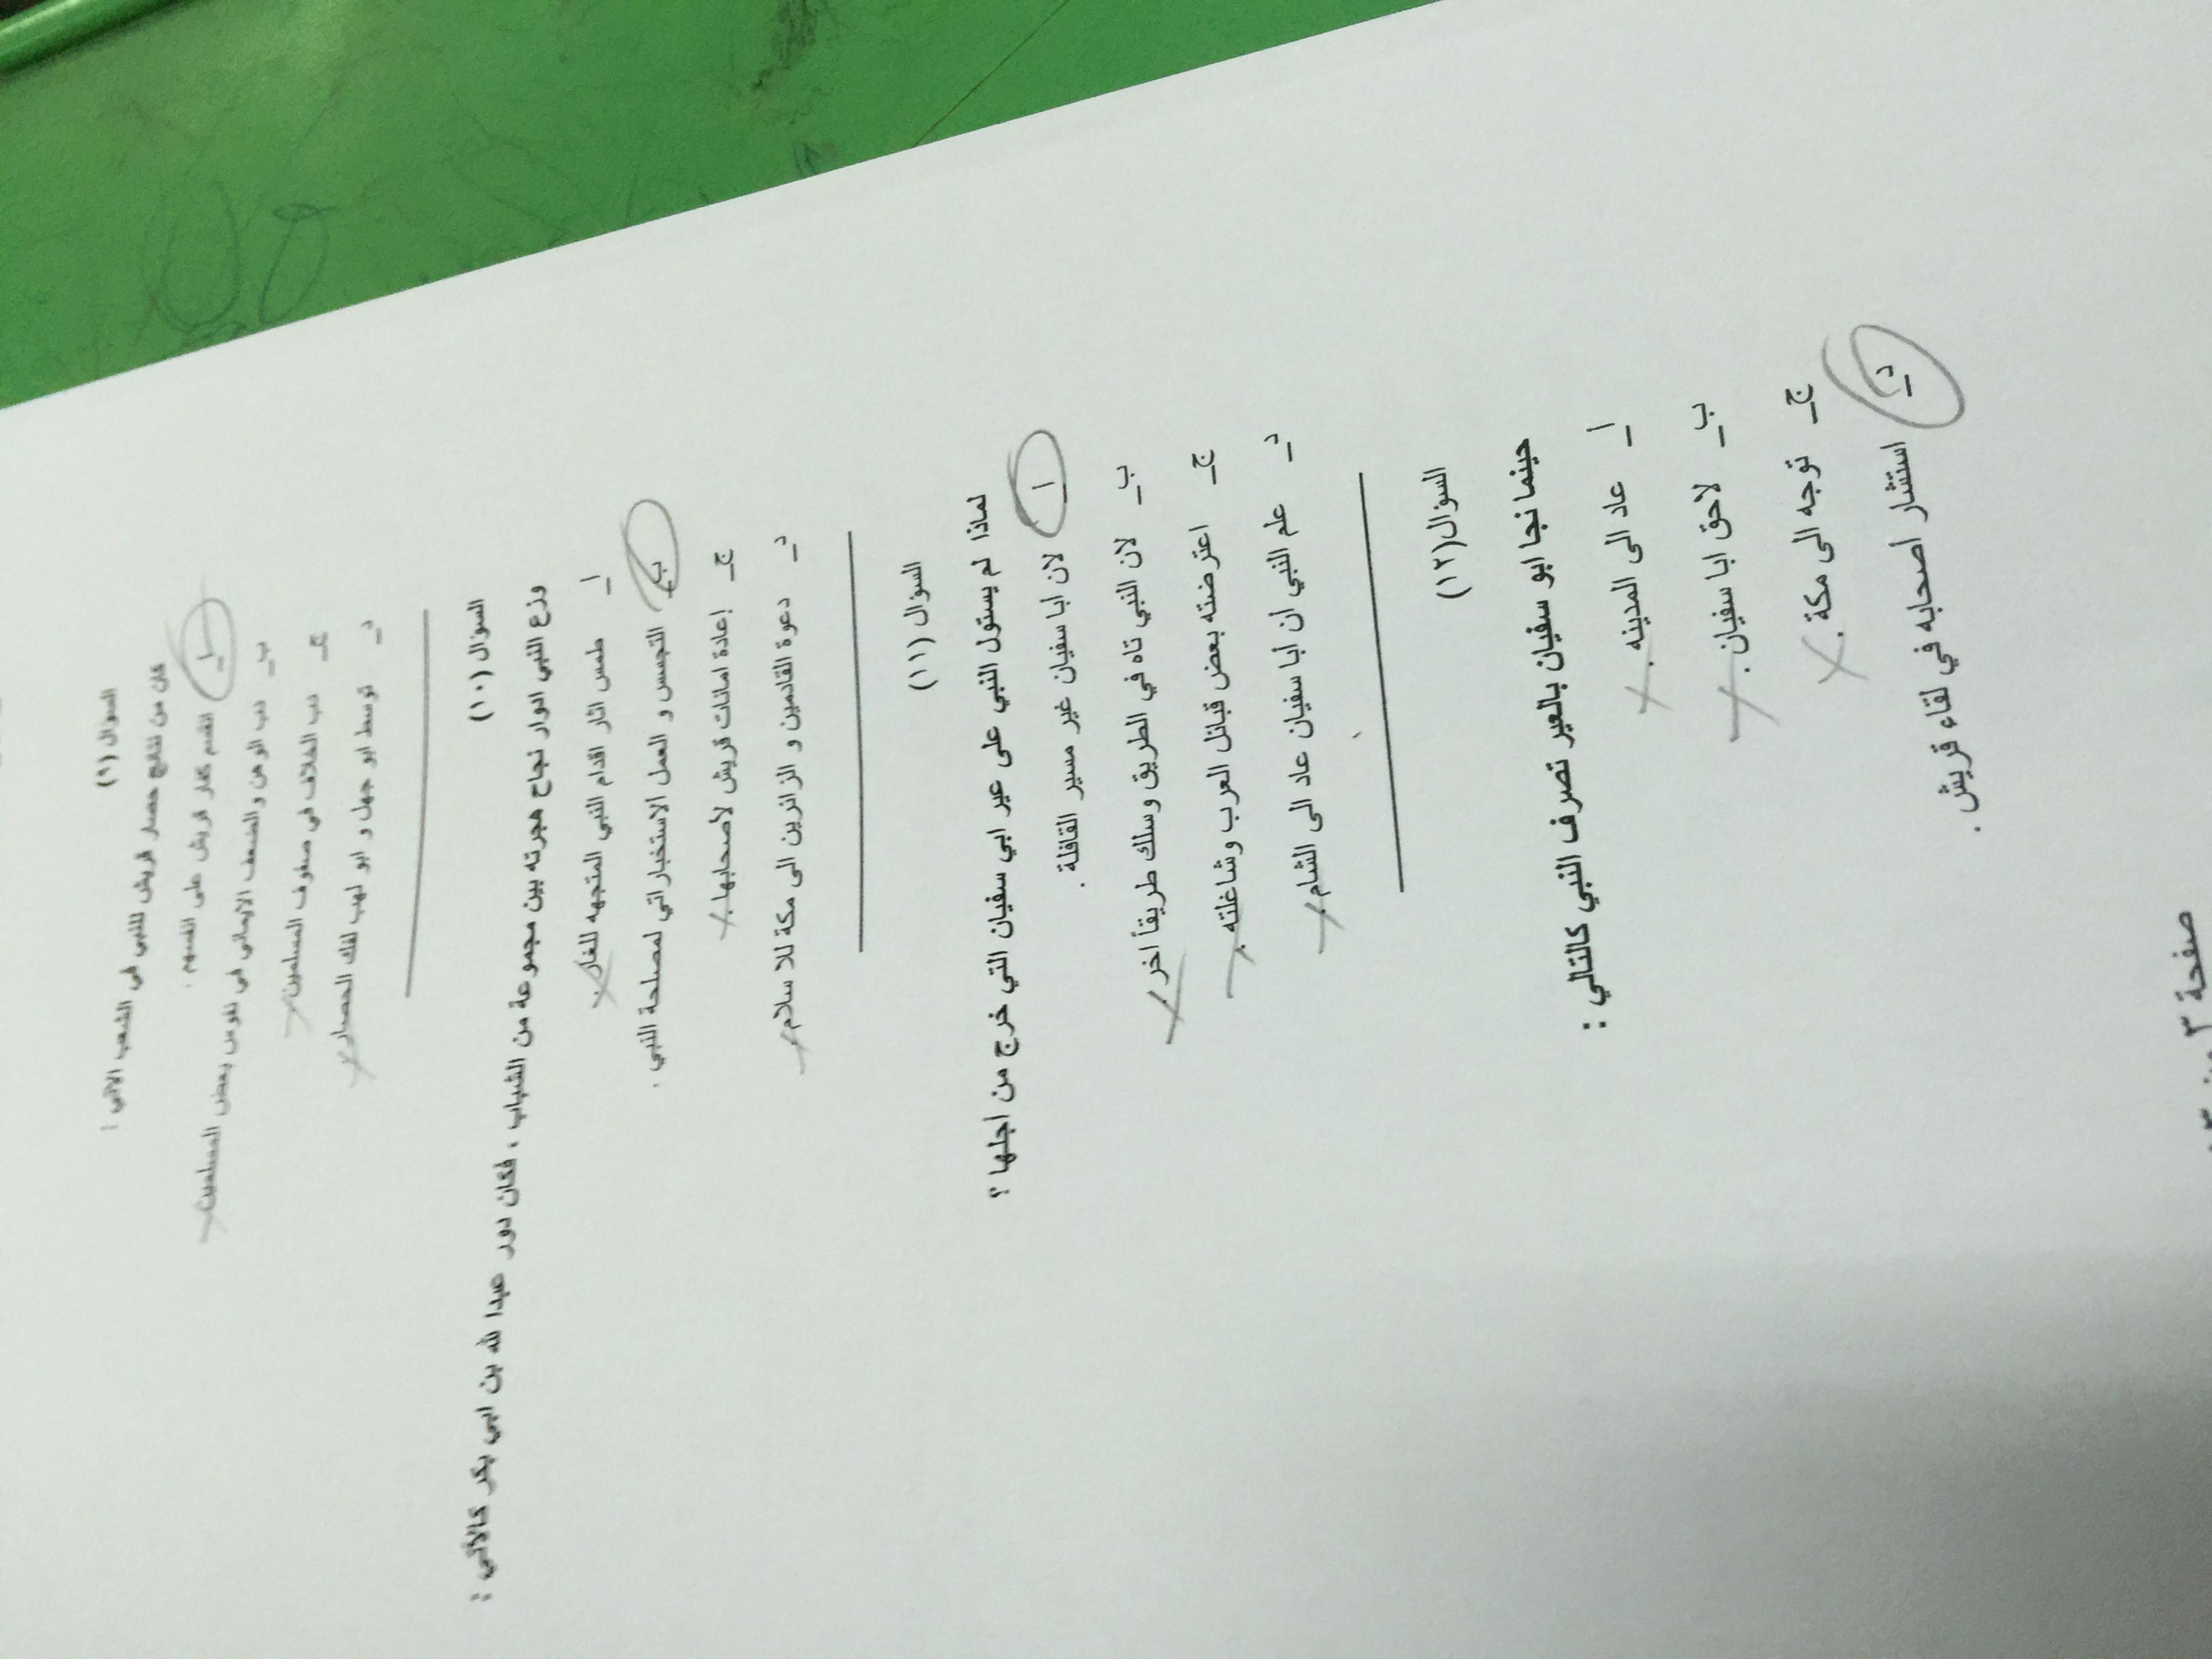 السؤال (٩)
كان من نتائج حصار قريش للنبي في الشعب الاتي :
ا_ انقسم كفار قريش على انفسهم .
ب_ دب الوهن والضعف الايماني في نفوس بعض المسلمين
ج_ دب الخلاف في صفوف المسلمين
د_ توسط ابو جهل و ابو لهب لفك الحصار
السؤال (١٠)
وزع النبي ادوار نجاح هجرته بين مجموعة من الشباب ، فكان دور عبدا لله بن ابي بكر كالاتي :
ا_ طمس اثار اقدام النبي المتجهه للغار.
ب_ التجسس و العمل الاستخباراتي لمصلحة النبي .
ج_ إعادة امانات قريش لأصحابها.
د_ دعوة القادمين و الزائرين الى مكة للا سلام.
السؤال (١١)
لماذا لم يستول النبي على عير ابي سفيان التي خرج من اجلها ؟
ا_ لان ابا سفيان غير مسير القافلة .
ب_ لان النبي تاه في الطريق وسلك طريقاً اخر.
ج_ اعترضته بعض قبائل العرب وشاغلته .
د_ علم النبي أن أبا سفيان عاد الى الشام.
السؤال(١٢)
حينما نجا ابو سفيان بالعير تصرف النبي كالتالي :
ا_ عاد الى المدينه .
ب_ لاحق ابا سفيان .
ج_ توجه الى مكة .
د_ استشار أصحابه في لقاء قريش .
صفحة ٣ من